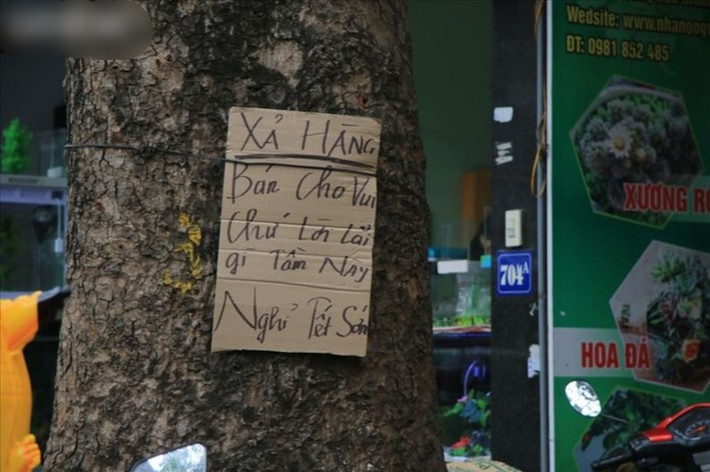 XẢ HÀNG
Bán Cho Vui
Chứ Lời Lãi
gì Tầm Này
Nghỉ Tết Sớm
Wedsite: www.nhanong
ĐT: 0981 852 485
XƯƠNG RỒ
704A
HOA ĐÁ